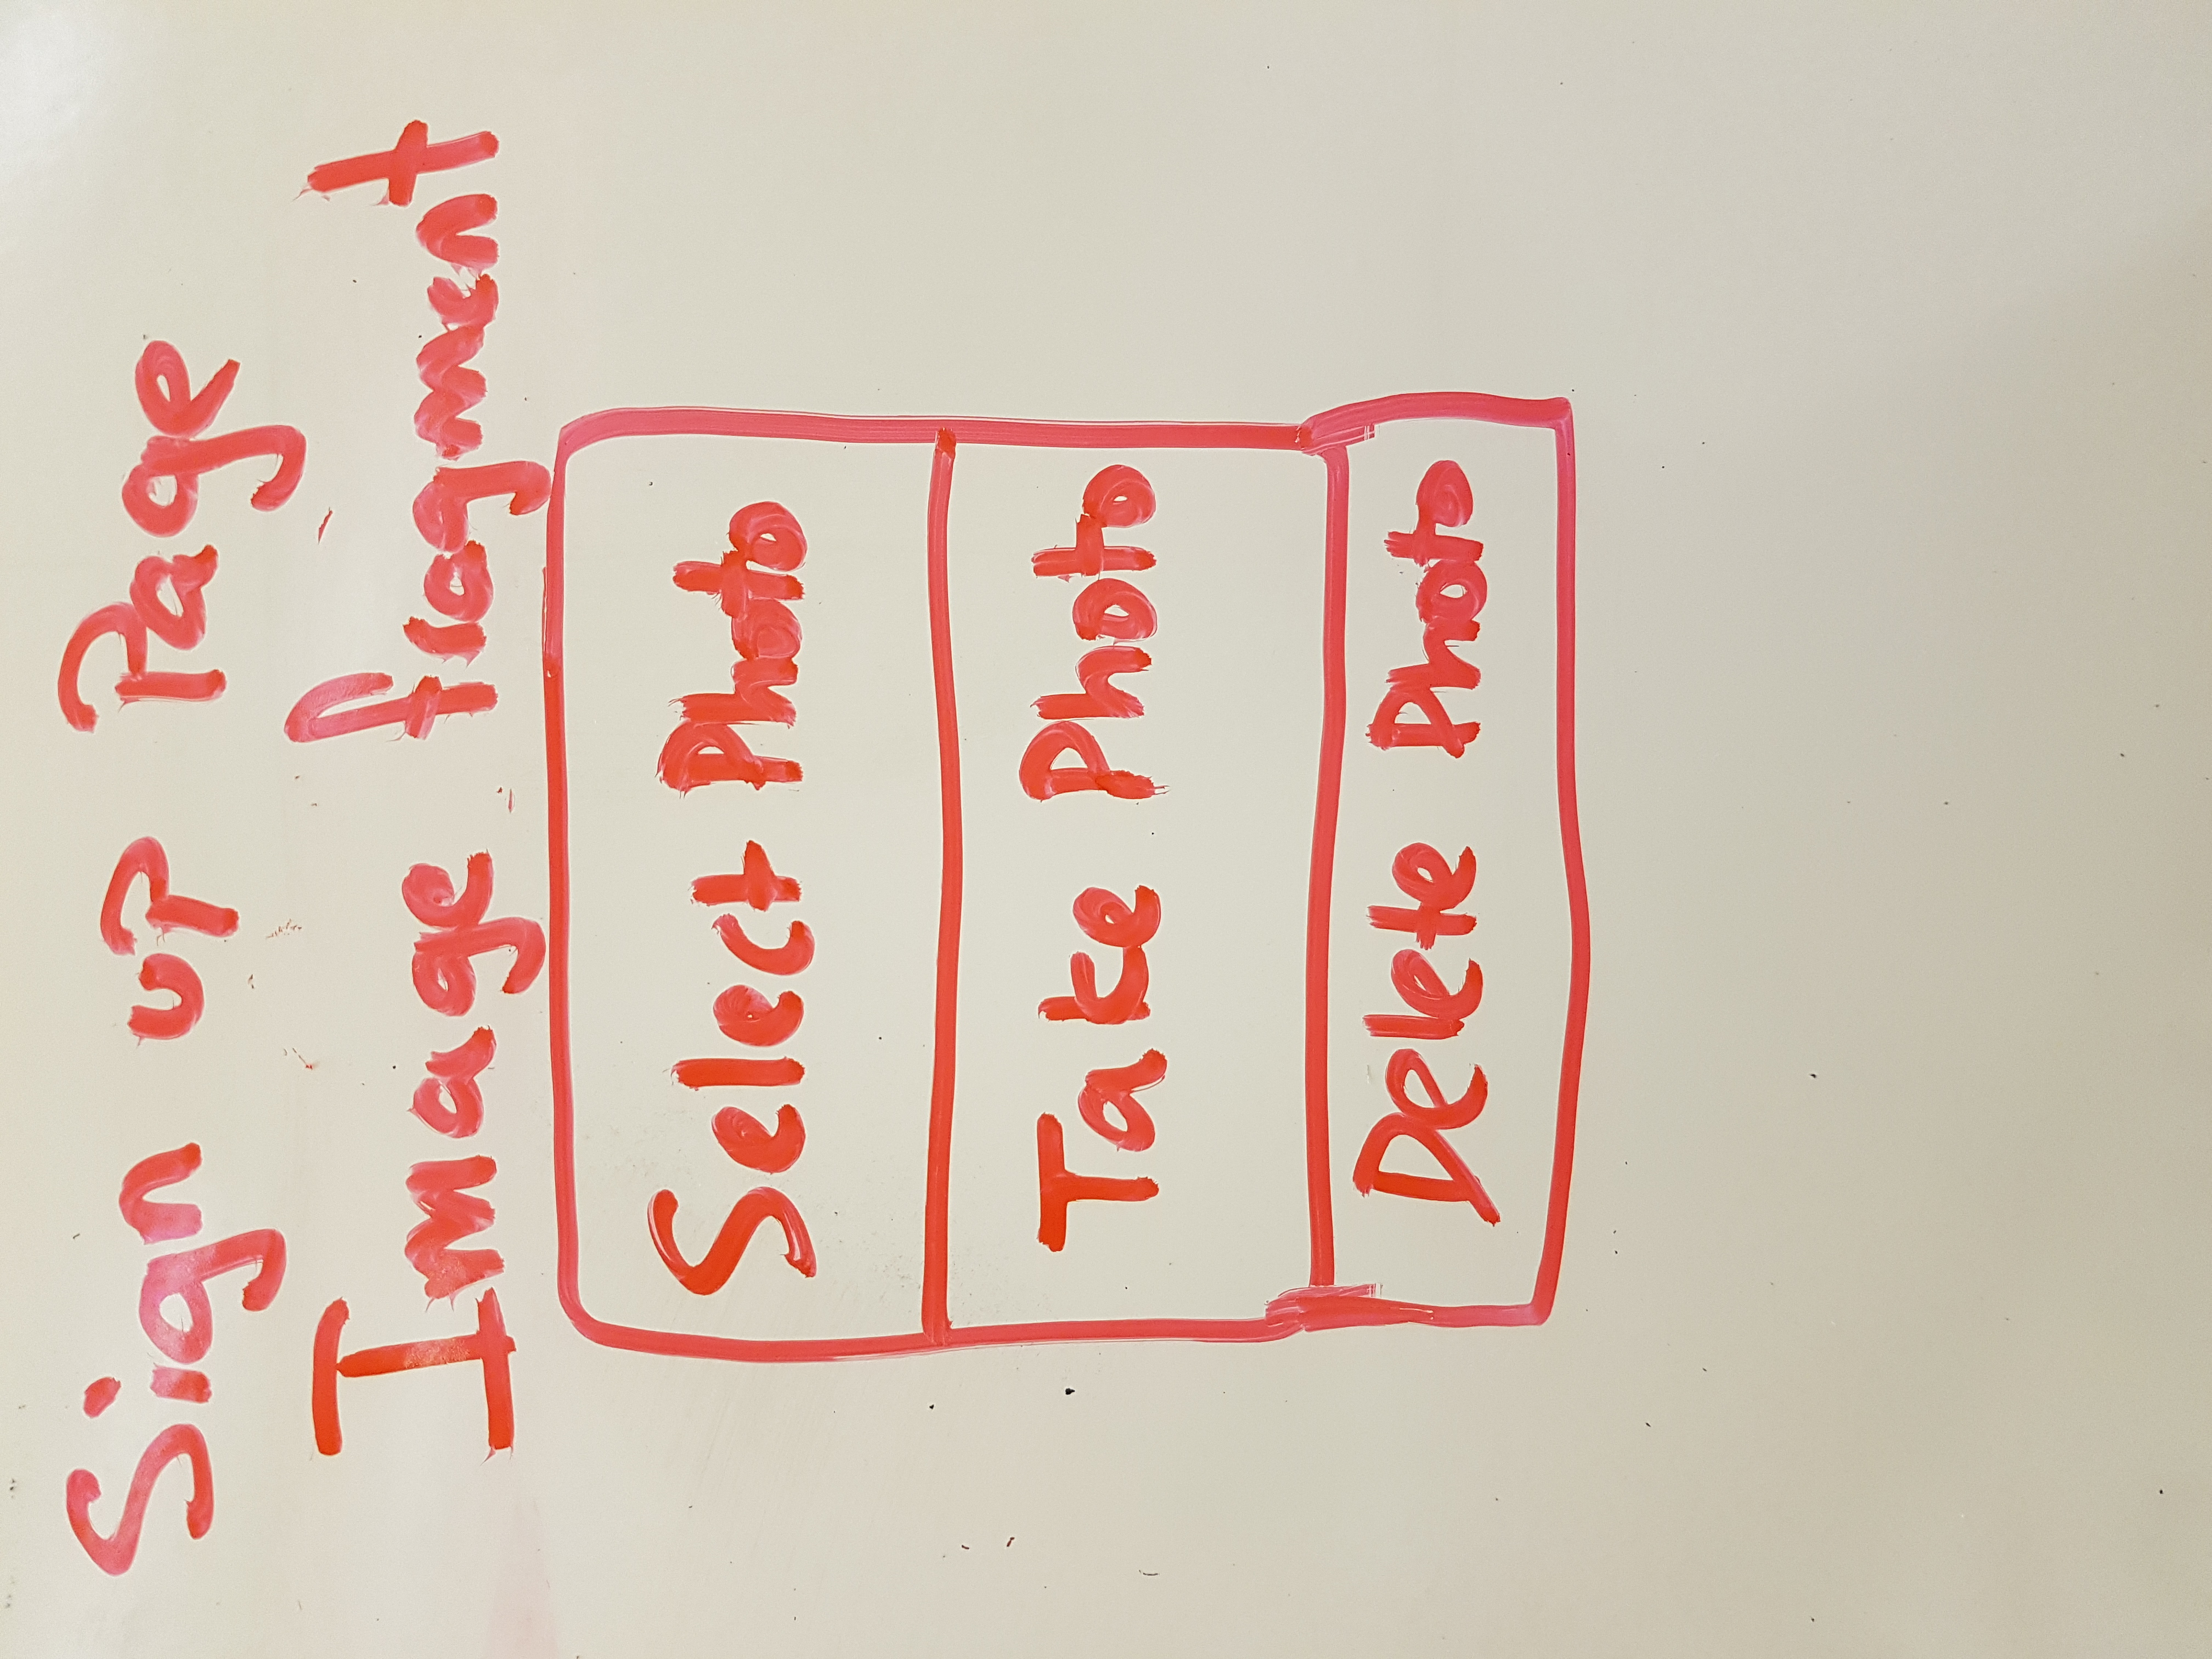 Sign up Page
Image fragment
Select Photo
Take Photo
Delete Photo